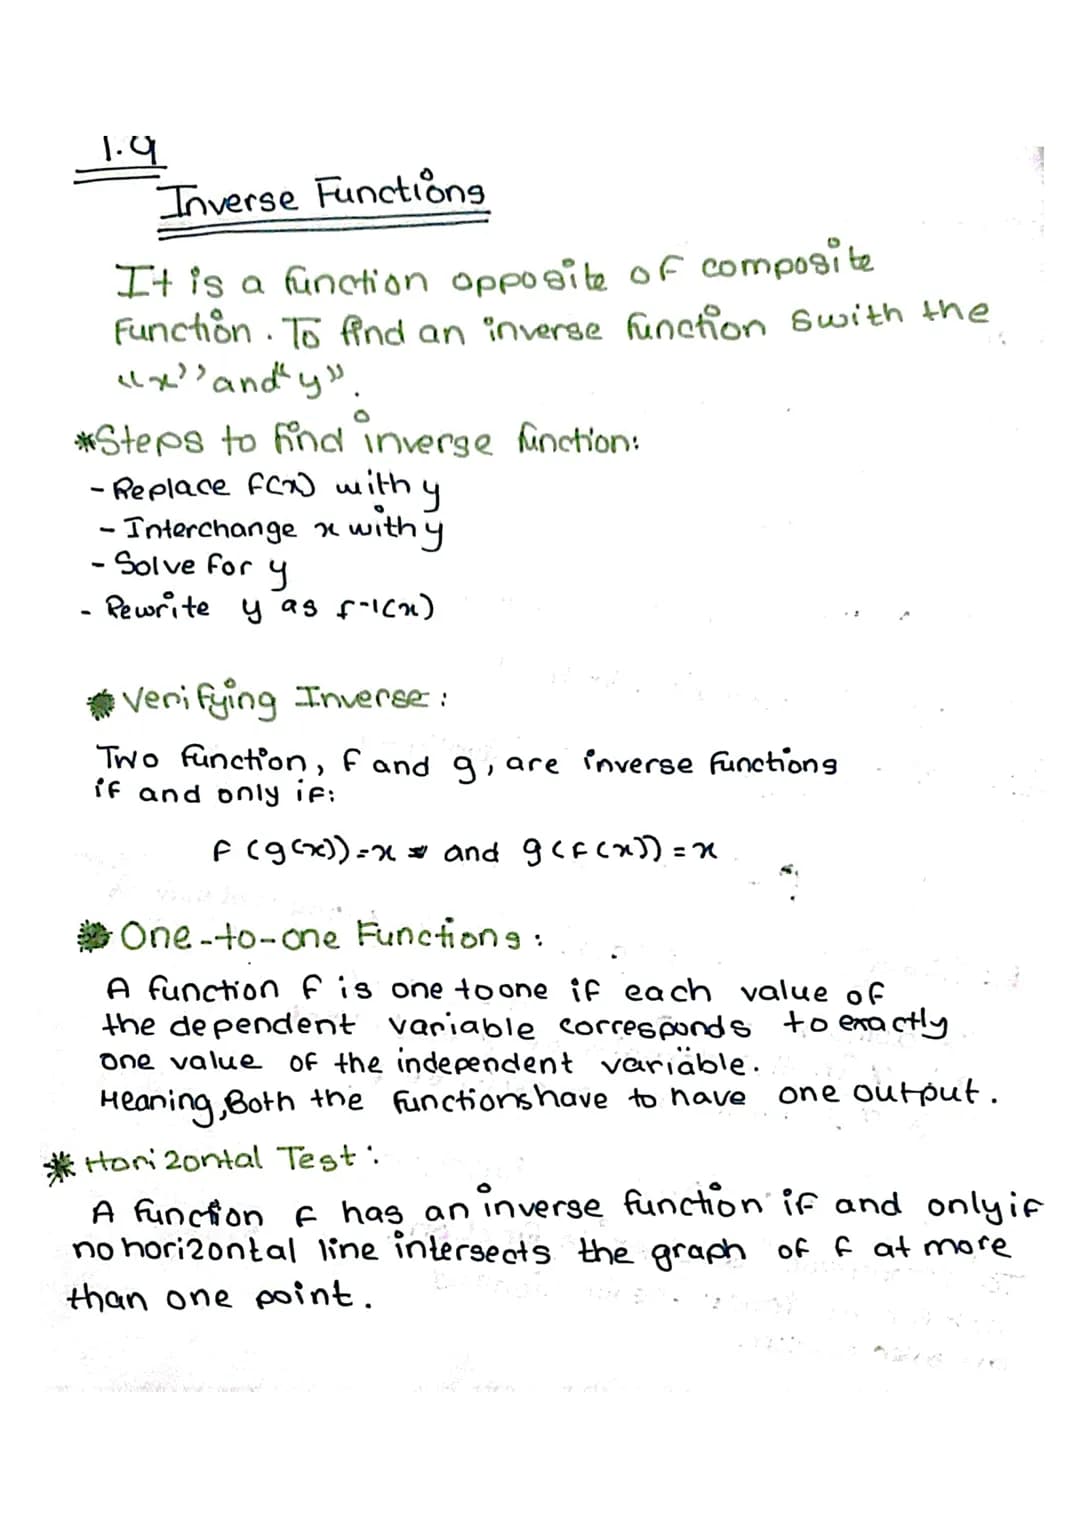 1.4
Inverse Functions
It is a function opposite of composite
Function. To find an inverse function swith the
"x" and "y".
*Steps to find inverse function:
- Replace f(x) with y
- Interchange x with y
- Solve for y
- Rewrite y as f-1(x)
* Verifying Inverse:
Two function, f and g, are inverse functions
if and only if:
f (g(x)) = x and g(f(x)) = x
* One-to-one Functions:
A function f is one to one if each value of
the dependent variable corresponds to exactly
one value of the independent variable.
Meaning, Both the functions have to have one output.
* Horizontal Test:
A function f has an inverse function if and only if
no horizontal line intersects the graph of f at more
than one point.